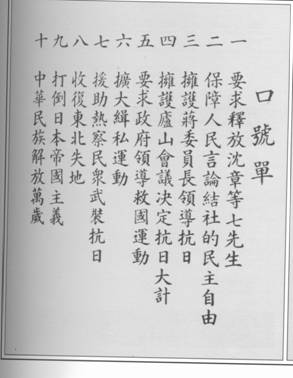 口號單
一 要求釋放沈章等七先生
二 保障人民言論結社的民主自由
三 擁護蔣委員長領導抗日
四 擁護廬山會議決定抗日大計
五 要求政府領導救國運動
六 擴大緝私運動
七 援助熱察民眾武裝抗日
八 收復東北失地
九 打倒日本帝國主義
十 中華民族解放萬歲